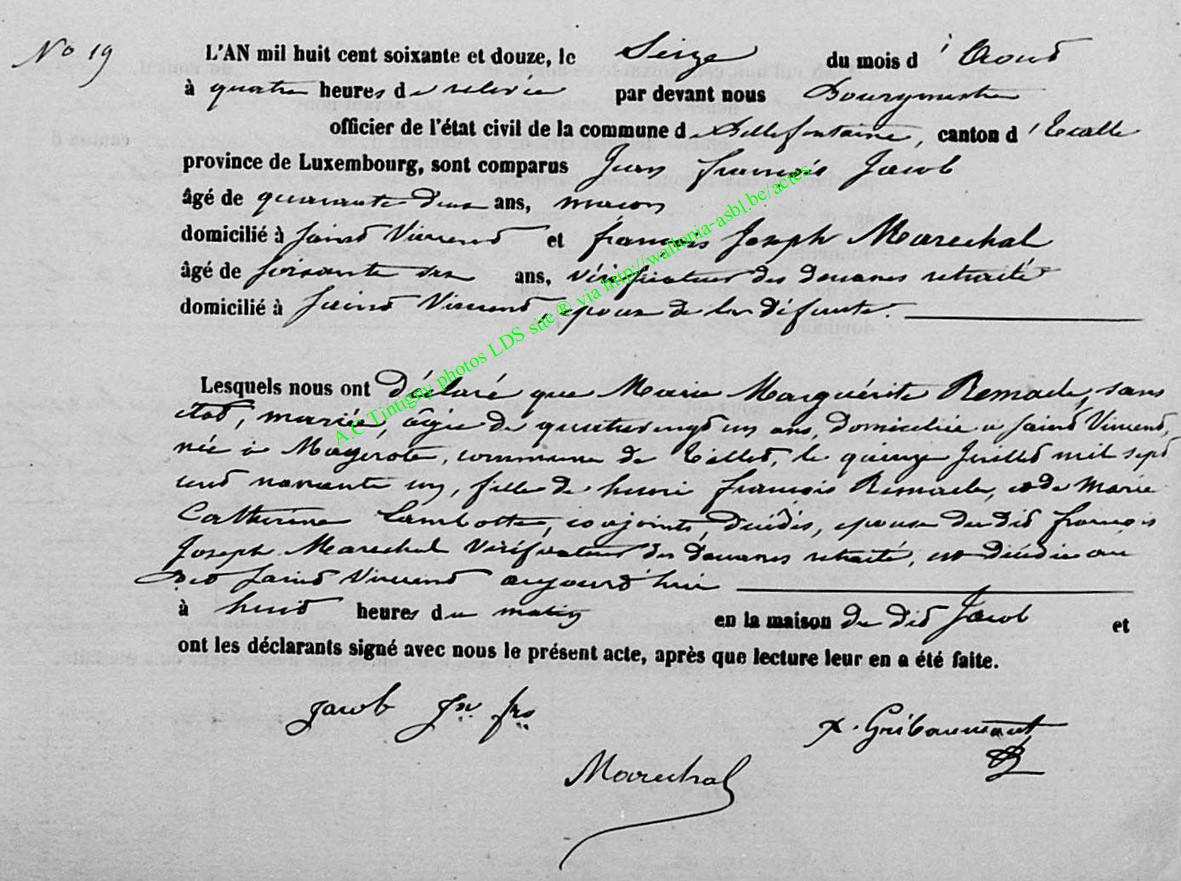 No 19
L'AN mil huit cent soixante et douze, le Seize du mois d'Aout
à quatre heures de relevée par devant nous Bourgmestre
officier de l'état civil de la commune de Bellefontaine, canton d'Etalle
province de Luxembourg, sont comparus Jean françois Jacob
âgé de quarante deux ans, maçon
domicilié à Saint Vincent et françois Joseph Marechal
âgé de soixante ans, vérificateur des douanes retraité
domicilié à Saint Vincent, epoux de la défunte.
Lesquels nous ont déclaré que Marie Marguérite Remacle, sans
etat, mariée, âgée de quatrevingt un ans, domiciliée a Saint Vincent,
née à Magerote, commune de Tillet, le quinze Juillet mil sept
cent nonante un, fille de henri françois Remacle, et de Marie
Catherine Lambotte, conjoints, décédés, epouse du dit françois
Joseph Marechal vérificateur des douanes retraité, est décédée au
dit Saint Vincent aujourd'hui
à huit heures du matin en la maison du dit Jacob et
ont les déclarants signé avec nous le présent acte, après que lecture leur en a été faite.
Jacob Jn frs
x. Gribaumont
Marechal
A.C Tintigny photos LDS site ® via http://wallonia-asbl.be/actes